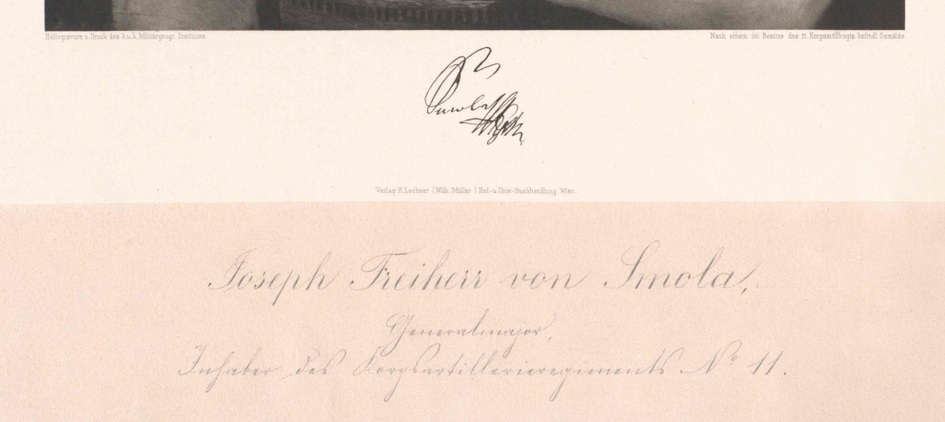 Heliogravure u. Druck des k.u.k. Militärgeogr. Institutes.
Nach einem im Besitze des 11. Korpsartlfrgts. befindl. Gemälde
Smola
Verlag R. Lechner (Wilh. Müller) Hof-u. Univ.-Buchhandlung Wien.
Joseph Freiherr von Smola,
Generalmajor,
Inhaber des Korpsartillerieregiments No 11.